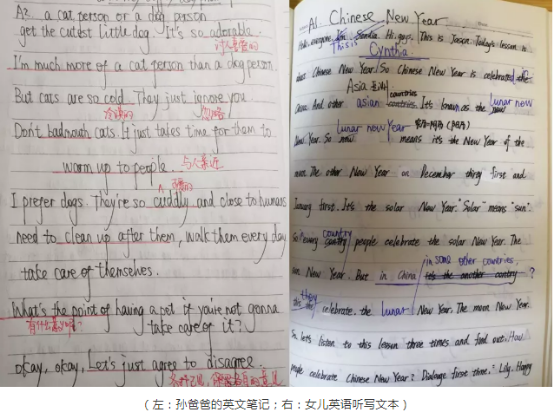 A2. a cat person or a dog person
get the cutest little dog. It's so adorable.
讨人喜爱的
I'm much more of a cat person than a dog person
But cats are so cold. They just ignore you
冷漠的 忽略
Don't badmouth cats. It just takes time for them to
warm up to people. 与人亲近
I prefer dogs. They're so cuddly and close to humans
need to clean up after them, walk them every day
take care of themselves.
What's the point of having a pet if you're not gonna
take care of it?
okay, okay, Let's just agree to disagree.
A1. Chinese New Year
everyone. Hi, guys. This is Jason. Today's lesson is
This is
Cynthia
about Chinese New Year. So Chinese New Year is celebrated
Asia countries
China And other asian countries. It's known as the lunar new
Lunar new Year
Year. So means it's the New Year of the
moon. The other New Year on December thirty first and
January first. It's the solar New Year. "Solar" means "sun".
country
So many people celebrate the solar New Year. The
in some other countries.
New Year. But in China its the another contry ?
they
celebrate the lunar New Year. The moon New Year.
So lets listen to this lesson three times and find out How
people celebrate Chinese New Year? Dialoge first three. Lily. Happy
(左:孙爸爸的英文笔记;右:女儿英语听写文本)